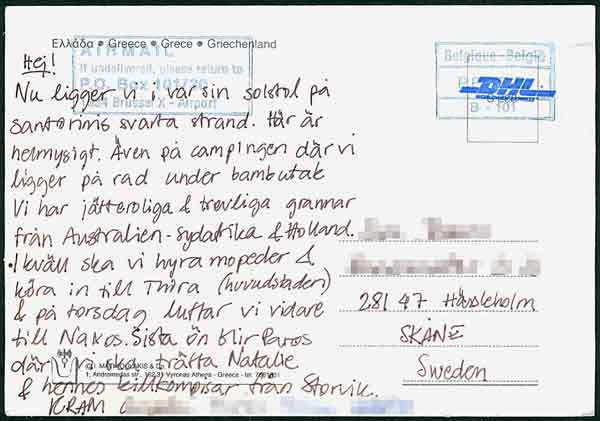 Ελλάδα • Greece • Grece • Griechenland
AIRMAIL
If undelivered, please return to
P.O. Box 101/20
Brussel X - Airport
Belgique - Belgïe
DHL
B - 101
Hej!
Nu ligger vi i var sin solstol på
santorinis svarta strand. Här är
helmysigt. Även på campingen där vi
ligger på rad under bambutak
Vi har jätteroliga & trevliga grannar
från Australien - Sydafrika & Holland.
Ikväll ska vi hyra mopeder &
köra in till Thira (huvudstaden)
& på torsdag luffar vi vidare
till Naxos. Sista ön blir Paros
där vi ska träffa Natalie
& hennes killkompisar från Storvik.
KRAM
281 47 Hässleholm
SKÅNE
Sweden
1, Andromedas str., Vyronas Athens - Greece - tel.